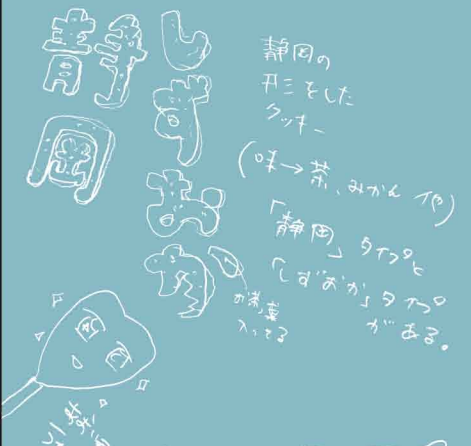 静岡
しずおか
静岡の
形をした
クッキー
(味→茶、みかん 他)
「静岡」タイプと
「しずおか」タイプ
がある。
お茶葉
入ってる